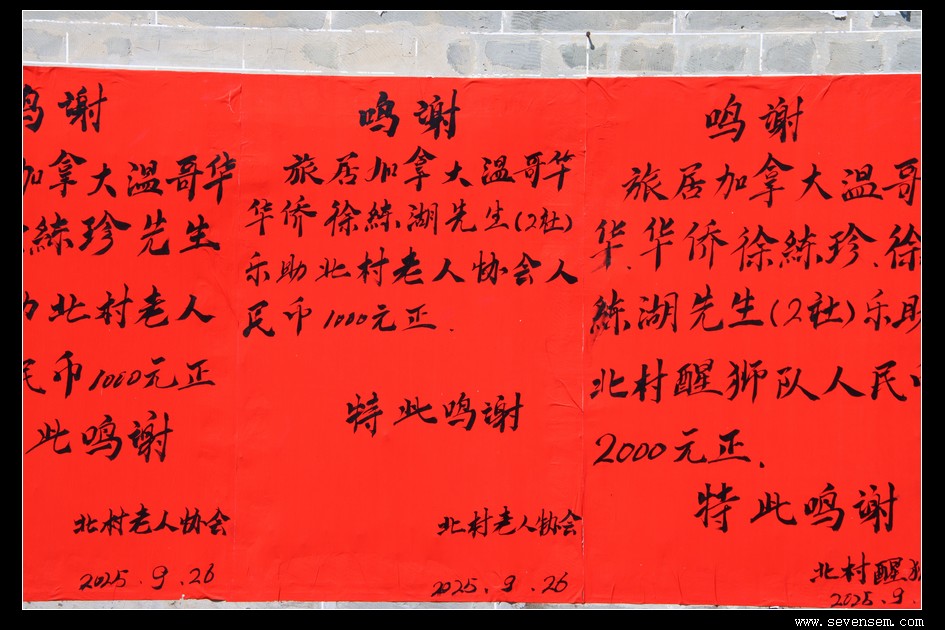 鸣谢
加拿大温哥华
練珍先生
助北村老人
民币1000元正
此鸣谢
北村老人协会
2025.9.26
鸣谢
旅居加拿大温哥华
华侨徐練湖先生(2社)
乐助北村老人协会人
民币1000元正.
特此鸣谢
北村老人协会
2025.9.26
鸣谢
旅居加拿大温哥
华.华侨徐練珍.徐
練湖先生(2社)乐助
北村醒狮队人民
2000元正.
特此鸣谢
北村醒狮
2025.9.
www.sevensem.com